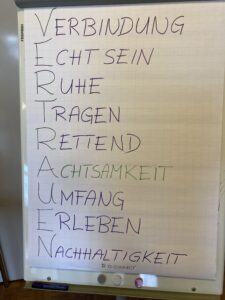 VERBINDUNG
ECHT SEIN
RUHE
TRAGEN
RETTEND
ACHTSAMKEIT
UMFANG
ERLEBEN
NACHHALTIGKEIT